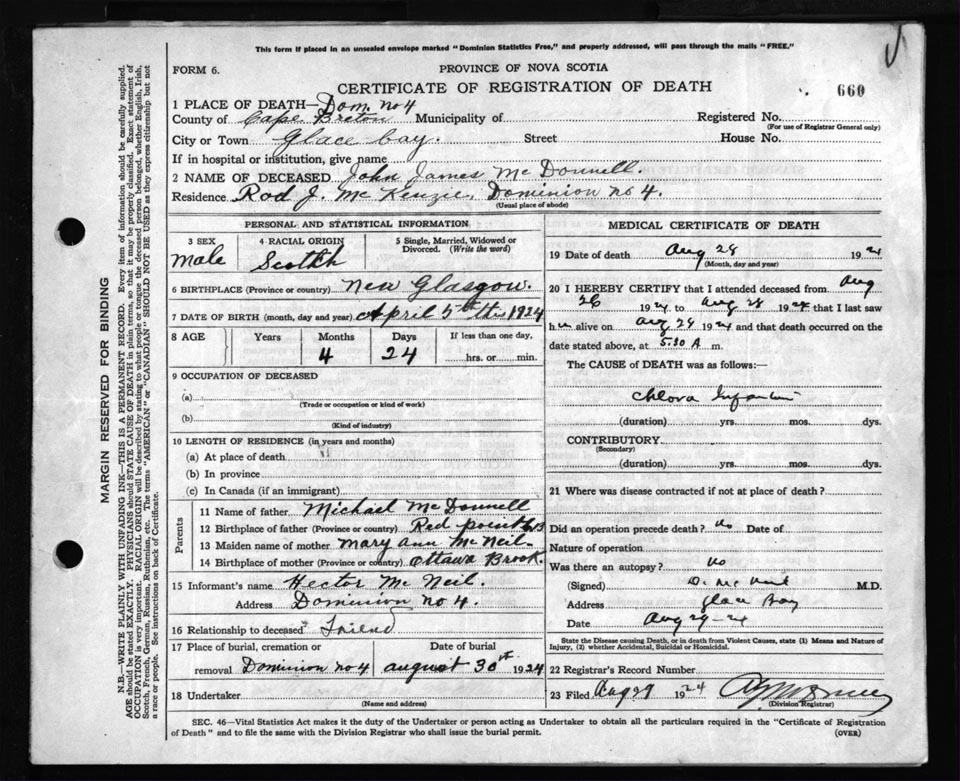 This form if placed in an unsealed envelope marked "Dominion Statistics Free," and properly addressed, will pass through the mails "FREE."
FORM 6.
PROVINCE OF NOVA SCOTIA
CERTIFICATE OF REGISTRATION OF DEATH
660
1 PLACE OF DEATH—Dom. no 4
County of Cape Breton Municipality of Registered No.
(For use of Registrar General only)
City or Town Glace bay. Street House No.
If in hospital or institution, give name
2 NAME OF DECEASED John James McDonnell.
Residence Rod J. McKenzie, Dominion no 4.
(Usual place of abode)
PERSONAL AND STATISTICAL INFORMATION
3 SEX
male
4 RACIAL ORIGIN
Scotth
5 Single, Married, Widowed or Divorced. (Write the word)
6 BIRTHPLACE (Province or country) New Glasgow.
7 DATE OF BIRTH (month, day and year) April 5th 1924
8 AGE Years Months Days If less than one day,
4 24 hrs. or min.
9 OCCUPATION OF DECEASED
(a)
(Trade or occupation or kind of work)
(b)
(Kind of industry)
10 LENGTH OF RESIDENCE (in years and months)
(a) At place of death
(b) In province
(c) In Canada (if an immigrant)
Parents
11 Name of father Michael McDonnell
12 Birthplace of father (Province or country) Red point CB
13 Maiden name of mother Mary ann McNeil.
14 Birthplace of mother (Province or country) Ottawa Brook.
15 Informant's name Hector McNeil.
Address Dominion no 4.
16 Relationship to deceased Friend
17 Place of burial, cremation or removal Dominion no 4
Date of burial
august 30th 1924
18 Undertaker
(Name and address)
MEDICAL CERTIFICATE OF DEATH
19 Date of death Aug 28 192
(Month, day and year)
20 I HEREBY CERTIFY that I attended deceased from Aug
26 1924 to Aug 28 1924 that I last saw
h alive on Aug 28 1924 and that death occurred on the
date stated above, at 5.30 A m.
The CAUSE of DEATH was as follows:—
Cholera Infantum
(duration) yrs. mos. dys.
CONTRIBUTORY
(Secondary)
(duration) yrs. mos. dys.
21 Where was disease contracted if not at place of death?
Did an operation precede death? no Date of
Nature of operation
Was there an autopsy? no
(Signed) M.D.
Address Glace Bay
Date Aug 29-24
State the Disease causing Death, or in death from Violent Causes, state (1) Means and Nature of Injury, (2) whether Accidental, Suicidal or Homicidal.
22 Registrar's Record Number
23 Filed Aug 29 1924
(Division Registrar)
SEC. 46—Vital Statistics Act makes it the duty of the Undertaker or person acting as Undertaker to obtain all the particulars required in the "Certificate of Registration
of Death" and to file the same with the Division Registrar who shall issue the burial permit.
(OVER)
MARGIN RESERVED FOR BINDING
N.B.—WRITE PLAINLY WITH UNFADING INK—THIS IS A PERMANENT RECORD. Every item of information should be carefully supplied.
AGE should be stated EXACTLY. PHYSICIANS should STATE CAUSE OF DEATH in plain terms, so that it may be properly classified. Exact statement of
OCCUPATION is very important. RACIAL ORIGIN will be described by stating to what people or tongue the deceased person belonged, whether English, Irish,
Scotch, French, German, Russian, Ruthenian, etc. The terms "AMERICAN" or "CANADIAN" SHOULD NOT BE USED as they express citizenship but not
a race or people. See instructions on back of Certificate.